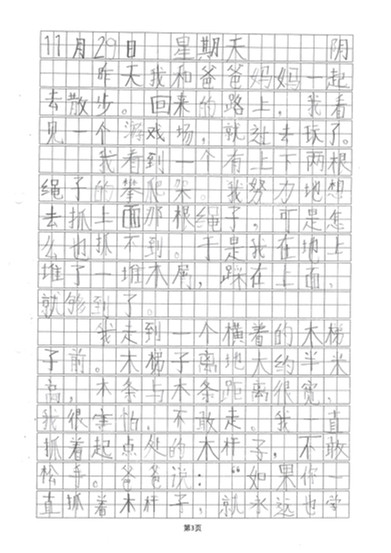 11月29日 星期天 阴
昨天我和爸爸妈妈一起
去散步。回来的路上，我看
见一个游戏场，就进去玩了。
我看到一个有上下两根
绳子的攀爬架。我努力地想
去抓上面那根绳子，可是怎
么也抓不到。于是我在地上
堆了一堆木屑，踩在上面，
就够到了。
我走到一个横着的木梯
子前。木梯子离地大约半米
高，木条与木条距离很宽，
我很害怕，不敢走。我一直
抓着起点处的木杆子，不敢
松手。爸爸说：“如果你一
直抓着木杆子，就永远也学
第3页